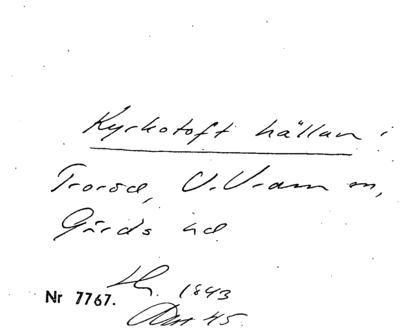 Kyrkotoft hällan i
Troröd, V. Vram sn,
Gärds hd
Nr 7767.
1843
45.